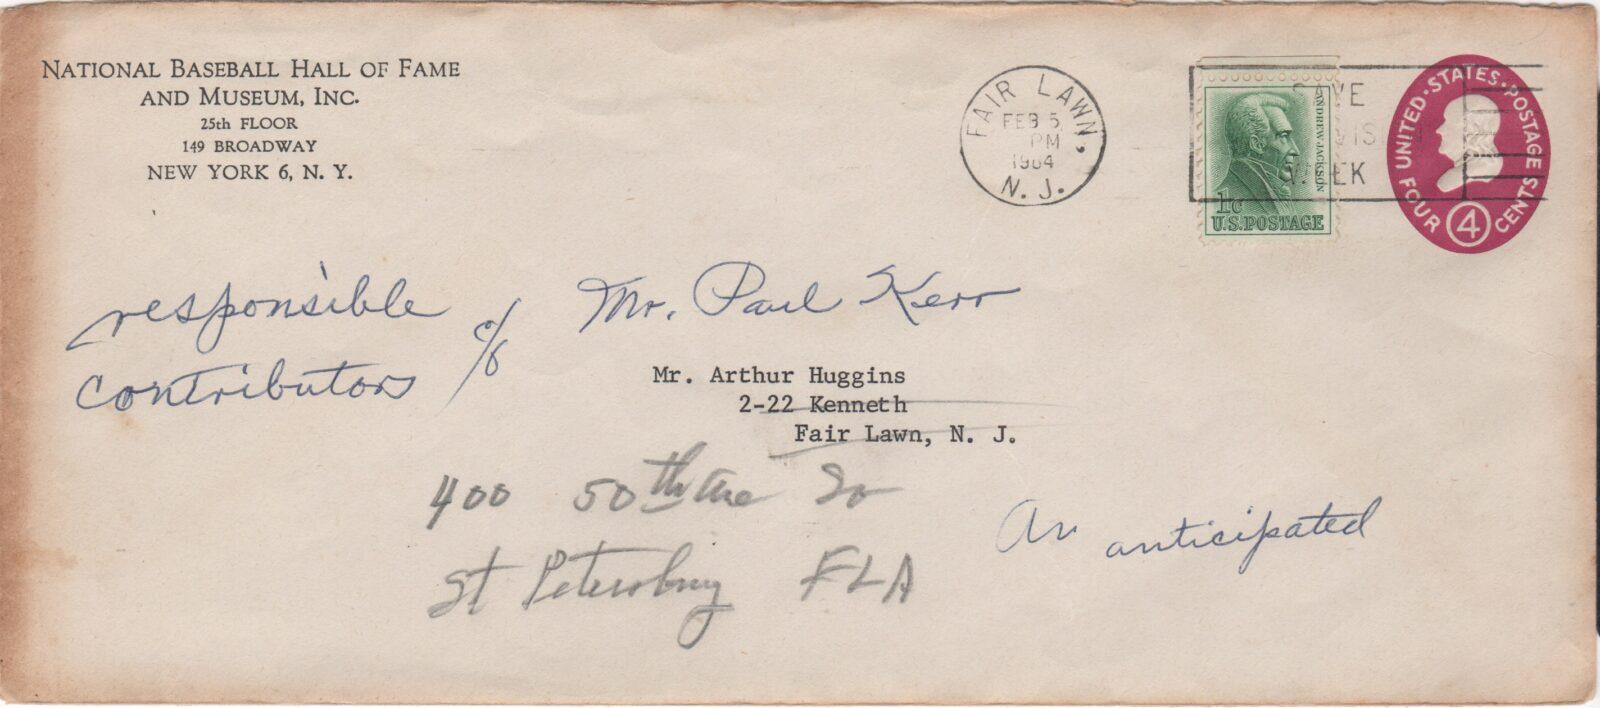 NATIONAL BASEBALL HALL OF FAME
AND MUSEUM, INC.
25th FLOOR
149 BROADWAY
NEW YORK 6, N. Y.
FAIR LAWN,
FEB 5
PM
1964
N. J.
SAVE
ANDREW JACKSON
1c
U.S. POSTAGE
UNITED·STATES·POSTAGE
FOUR 4 CENTS
responsible
contributors
c/o Mr. Paul Kerr
Mr. Arthur Huggins
2-22 Kenneth
Fair Lawn, N. J.
400 50th Ave So
St Petersburg FLA
An anticipated